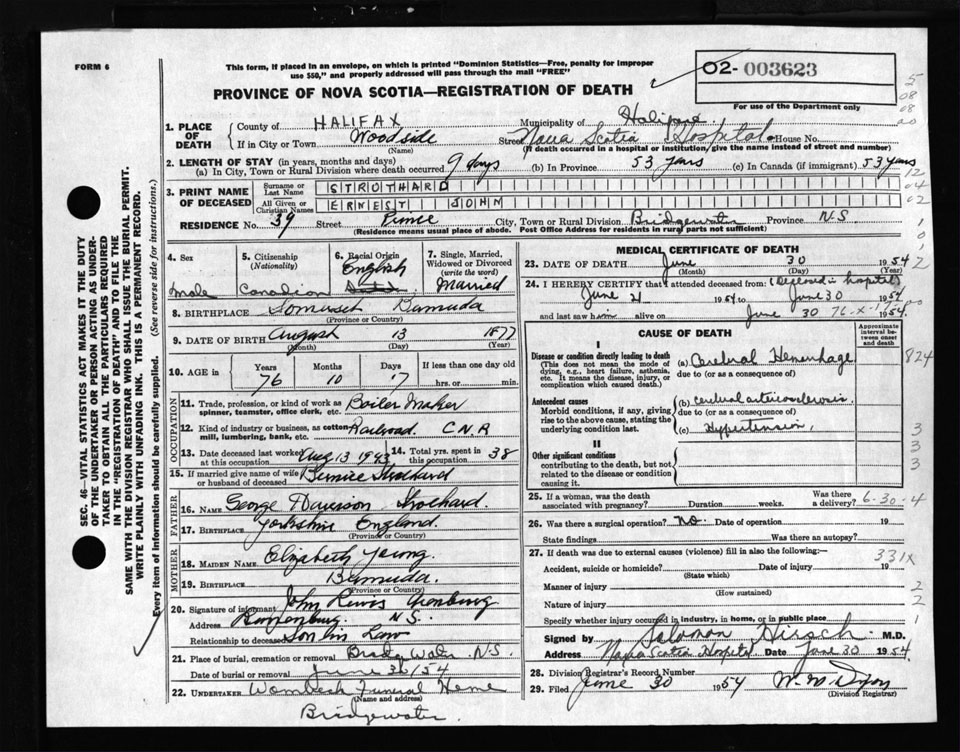 FORM 6
This form, if placed in an envelope, on which is printed "Dominion Statistics—Free, penalty for improper
use $50," and properly addressed will pass through the mail "FREE"
O2- 003623
PROVINCE OF NOVA SCOTIA—REGISTRATION OF DEATH
For use of the Department only
5
08
08
20
1. PLACE OF DEATH
County of HALIFAX Municipality of Halifax
If in City or Town Woodside Street Nova Scotia Hospital House No.
(Name) (If death occurred in a hospital or institution, give the name instead of street and number)
2. LENGTH OF STAY (in years, months and days)
(a) In City, Town or Rural Division where death occurred 9 days (b) In Province 53 years (c) In Canada (if immigrant) 53 years
12
04
02
3. PRINT NAME OF DECEASED
Surname or Last Name STROTHARD
All Given or Christian Names ERNEST JOHN
RESIDENCE No. 39 Street City, Town or Rural Division Bridgewater Province N.S.
(Residence means usual place of abode. Post Office Address for residents in rural parts not sufficient)
4. Sex
male
5. Citizenship
(Nationality)
Canadian
6. Racial Origin
English
7. Single, Married,
Widowed or Divorced
(write the word)
Married
8. BIRTHPLACE Somerset Bermuda
(Province or Country)
9. DATE OF BIRTH August 13 1877
(Month) (Day) (Year)
10. AGE in
Years Months Days If less than one day old
76 10 17 hrs. or min.
OCCUPATION
11. Trade, profession, or kind of work as
spinner, teamster, office clerk, etc. Boiler Maker
12. Kind of industry or business, as cotton
mill, lumbering, bank, etc. Railroad C.N.R
13. Date deceased last worked
at this occupation Aug 13 1943
14. Total yrs. spent in
this occupation 38
15. If married give name of wife
or husband of deceased Bernice Strothard
FATHER
16. NAME George Davison Strothard
17. BIRTHPLACE Yorkshire England
(Province or Country)
MOTHER
18. MAIDEN NAME Elizabeth Young
19. BIRTHPLACE Bermuda
(Province or Country)
20. Signature of informant John Lewis
Address N.S.
Relationship to deceased Son in Law
21. Place of burial, cremation or removal Bridgewater N.S.
Date of burial or removal June 30/54
22. UNDERTAKER Funeral Home
(Name and address)
Bridgewater
MEDICAL CERTIFICATE OF DEATH
23. DATE OF DEATH June 30 1954
(Month) (Day) (Year)
24. I HEREBY CERTIFY that I attended deceased from: hospital
June 21 1954 to June 30 1954
and last saw him alive on June 30 1954.
CAUSE OF DEATH
Approximate
interval be-
tween onset
and death
I
Disease or condition directly leading to death
(This does not mean the mode of
dying, e.g., heart failure, asthenia,
etc. It means the disease, injury, or
complication which caused death.)
(a) Cerebral Hemorrhage
due to (or as a consequence of)
824
Antecedent causes
Morbid conditions, if any, giving
rise to the above cause, stating the
underlying condition last.
(b) cerebral arteriosclerosis
due to (or as a consequence of)
(c) Hypertension
3
3
3
II
Other significant conditions
contributing to the death, but not
related to the disease or condition
causing it.
25. If a woman, was the death
associated with pregnancy? Duration weeks. Was there
a delivery? 6-30-4
26. Was there a surgical operation? No. Date of operation 19
State findings Was there an autopsy?
27. If death was due to external causes (violence) fill in also the following: 331X
Accident, suicide or homicide? Date of injury 19
(State which)
Manner of injury
(How sustained)
2
Nature of injury
2
Specify whether injury occurred in industry, in home, or in public place 1
Signed by Solomon Hirsch M.D.
Address Nova Scotia Hospital Date June 30 1954
28. Division Registrar's Record Number
29. Filed June 30 1954
(Division Registrar)
SEC. 46—VITAL STATISTICS ACT MAKES IT THE DUTY
OF THE UNDERTAKER OR PERSON ACTING AS UNDER-
TAKER TO OBTAIN ALL THE PARTICULARS REQUIRED
IN THE "REGISTRATION OF DEATH" AND TO FILE THE
SAME WITH THE DIVISION REGISTRAR WHO SHALL ISSUE THE BURIAL PERMIT.
WRITE PLAINLY WITH UNFADING INK. THIS IS A PERMANENT RECORD.
Every item of information should be carefully supplied. (See reverse side for instructions.)